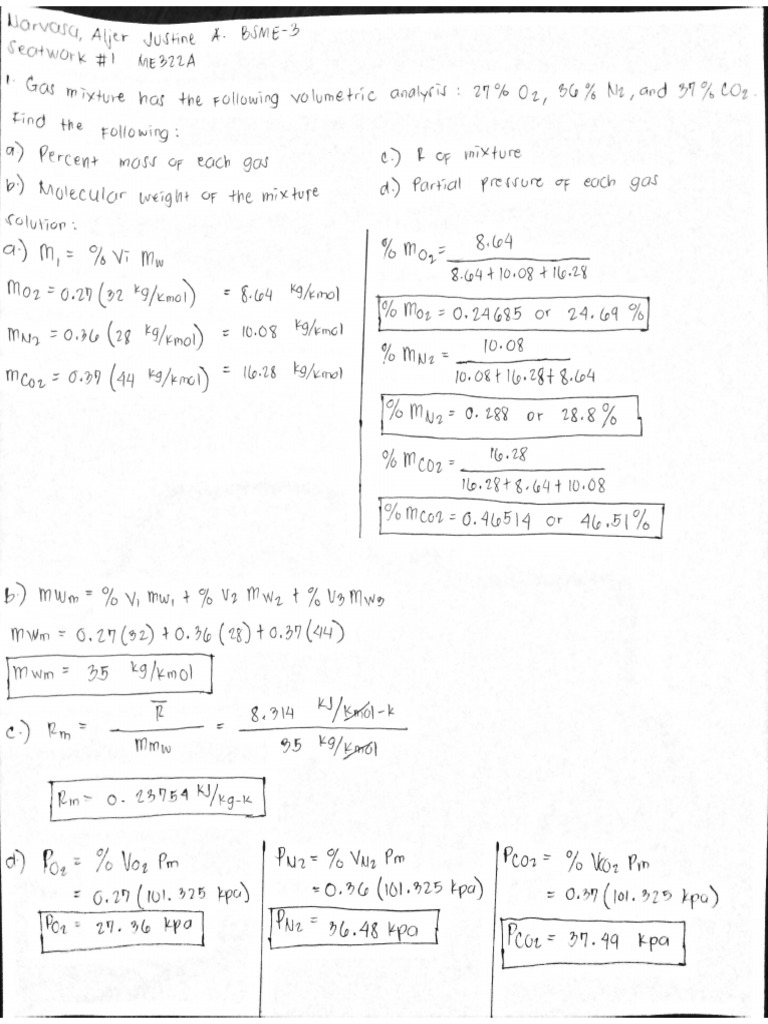 Narvasa, Aljer Justine A. BSME-3
Seatwork #1 ME322A
1. Gas mixture has the following volumetric analysis: 27% O2, 36% N2, and 37% CO2.
Find the following:
a) Percent mass of each gas
b.) Molecular weight of the mixture
c.) R of mixture
d.) Partial pressure of each gas
solution:
a.) M1 = % Vi Mw
MO2 = 0.27 (32 kg/kmol) = 8.64 kg/kmol
mN2 = 0.36 (28 kg/kmol) = 10.08 kg/kmol
mCO2 = 0.37 (44 kg/kmol) = 16.28 kg/kmol
% MO2 = 8.64
8.64 + 10.08 + 16.28
% MO2 = 0.24685 or 24.69 %
% MN2 = 10.08
10.08 + 16.28 + 8.64
% MN2 = 0.288 or 28.8 %
% MCO2 = 16.28
16.28 + 8.64 + 10.08
% MCO2 = 0.46514 or 46.51%
b.) MWm = % V1 MW1 + % V2 MW2 + % V3 MW3
MWm = 0.27(32) + 0.36(28) + 0.37(44)
MWm = 35 kg/kmol
c.) Rm = R̅ = 8.314 KJ/kmol-k
Mmw 35 kg/kmol
Rm = 0.23754 KJ/kg-k
d) PO2 = % VO2 Pm
= 0.27 (101.325 kpa)
PO2 = 27.36 kpa
PN2 = % VN2 Pm
= 0.36 (101.325 kpa)
PN2 = 36.48 kpa
PCO2 = % VCO2 Pm
= 0.37 (101.325 kpa)
PCO2 = 37.49 kpa